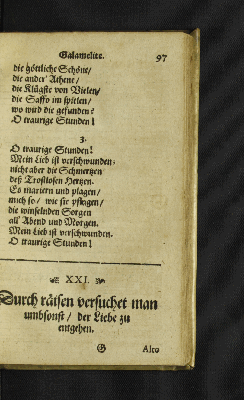 Galamelite. 97
die göttliche Schöne/
die ander' Athene/
die Klügste von Vielen/
die Saffo im spielen/
wo wird die gefunden?
O traurige Stunden!
3.
O traurige Stunden!
Mein Lieb ist verschwunden:
nicht aber die Schmertzen
deß Trostlosen Hertzen.
Es martern und plagen/
mich so/ wie sie pflagen/
die winselnden Sorgen
all' Abend und Morgen.
Mein Lieb ist verschwunden.
O traurige Stunden!
XXI.
Durch räisen versuchet man
umbsonst/ der Liebe zu
entgehen.
G Also